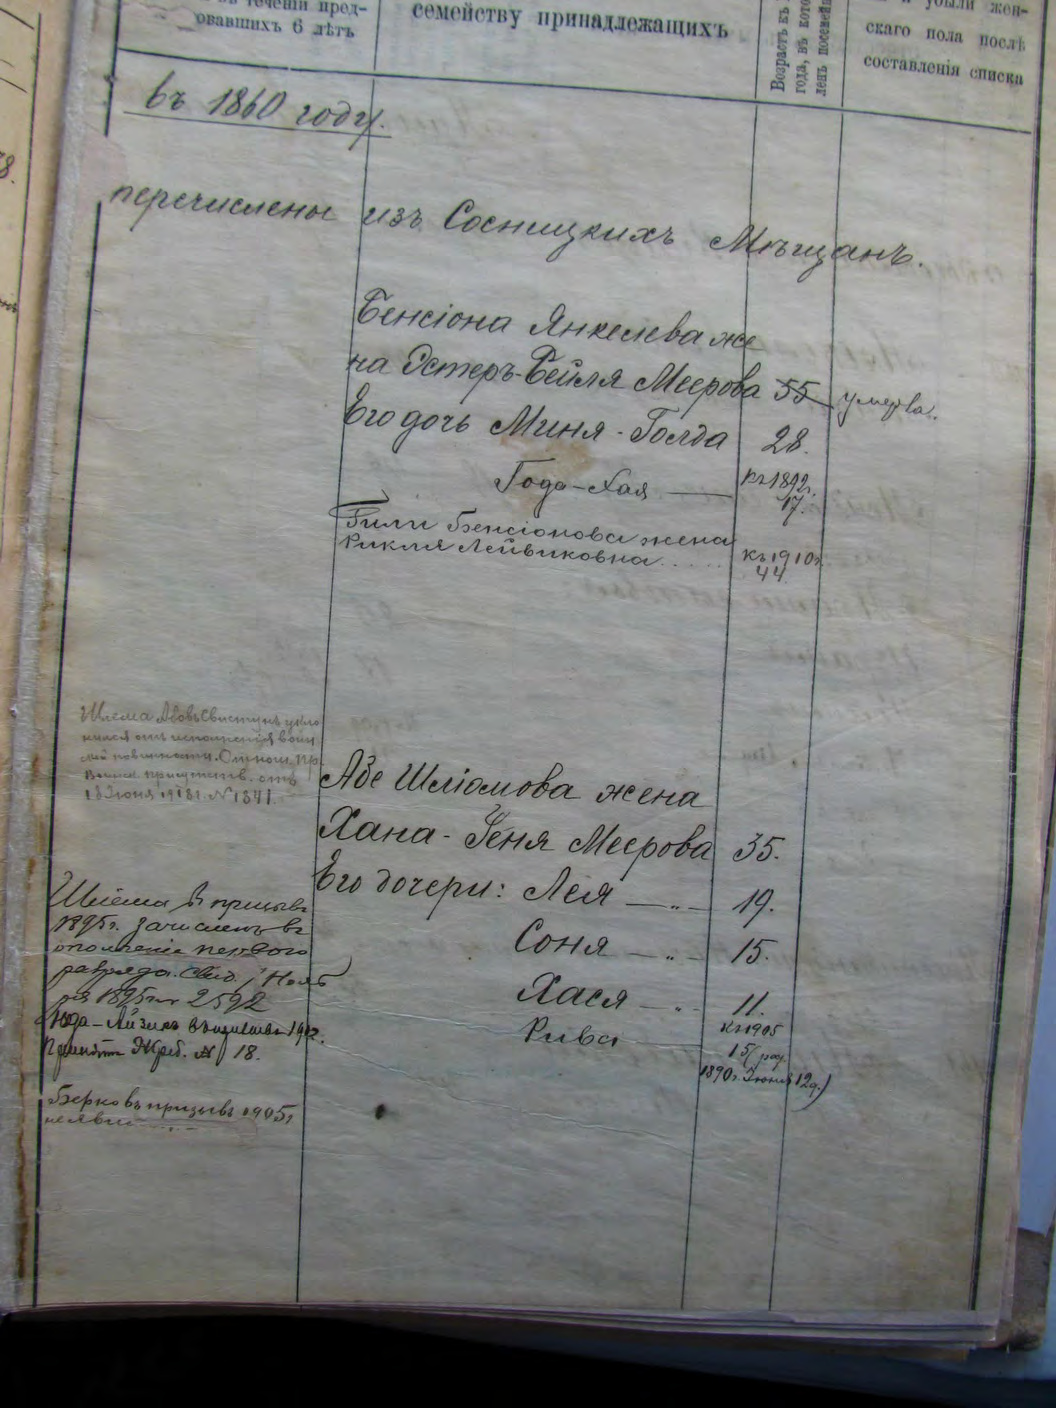 въ теченіи пред-
овавшихъ 6 лѣтъ
семейству принадлежащихъ
Возрастъ къ
года, въ кото
ленъ посемей
и убыли жен-
скаго пола послѣ
составленія списка
въ 1860 году.
перечислены изъ Сосницкихъ Мѣщанъ.
Бенсіона Янкелева же
на Эстеръ-Бейля Меерова 55 умерла.
Его дочь Миня-Голда 28.
Года-Хая — къ 1892г.
17.
Гили Бенсіонова жена
Рикля Лейвиковна..... къ 1910г.
44
Шлема Абовъ Свистунъ укло
нился отъ исполненія воин
ской повинности. Отнош. Пр.
Воинск. присутств. отъ
18 Іюня 1918г. № 1841.
Абе Шліомова жена
Хана-Феня Меерова 35.
Его дочери: Лея —"— 19.
Соня —"— 15.
Хася —"— 11.
Рива — къ 1905
15/ род.
1890г. Іюня 12д.)
Шлема въ призывъ
1895г. зачисленъ въ
ополченіе перваго
разряда. Свид. Нояб
ря 1895г. № 2592
Юда-Айзикъ въ призывъ
Жреб. № 18.
Берко въ призывъ 1905г
неявил